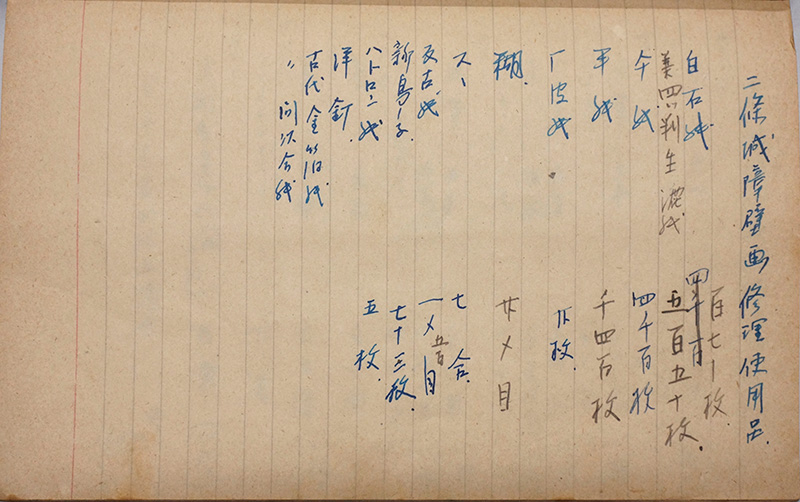 二條城障壁画修理使用品.
白石紙 百七〡枚.
美四〻判生漉紙 五百五十枚.
四千百
牛紙 四千百枚
平紙 千四百枚
厂皮紙 廿枚.
糊. 廿〆目
スー 七合.
反古紙 一〆五百目
新鳥ノ子. 七十三枚.
ハトロン紙 五枚.
洋釘
古代金箔紙
〃同次合紙